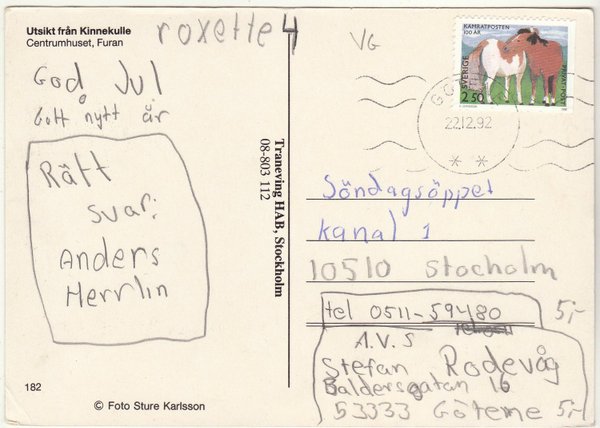 Utsikt från Kinnekulle
Centrumhuset, Furan
roxette 4
VG
KAMRATPOSTEN
100 ÅR
SVERIGE
2.50
22.12.92
God Jul
Gott nytt år
Rätt
svar:
Anders
Herrlin
Traneving HAB, Stockholm
08-803 112
Söndagsöppet
kanal 1
10510 Stocholm
tel 0511-59480 5;-
A.V.S
Stefan Rodevåg
Baldersgatan 16
53333 Götene 5;-
182
© Foto Sture Karlsson